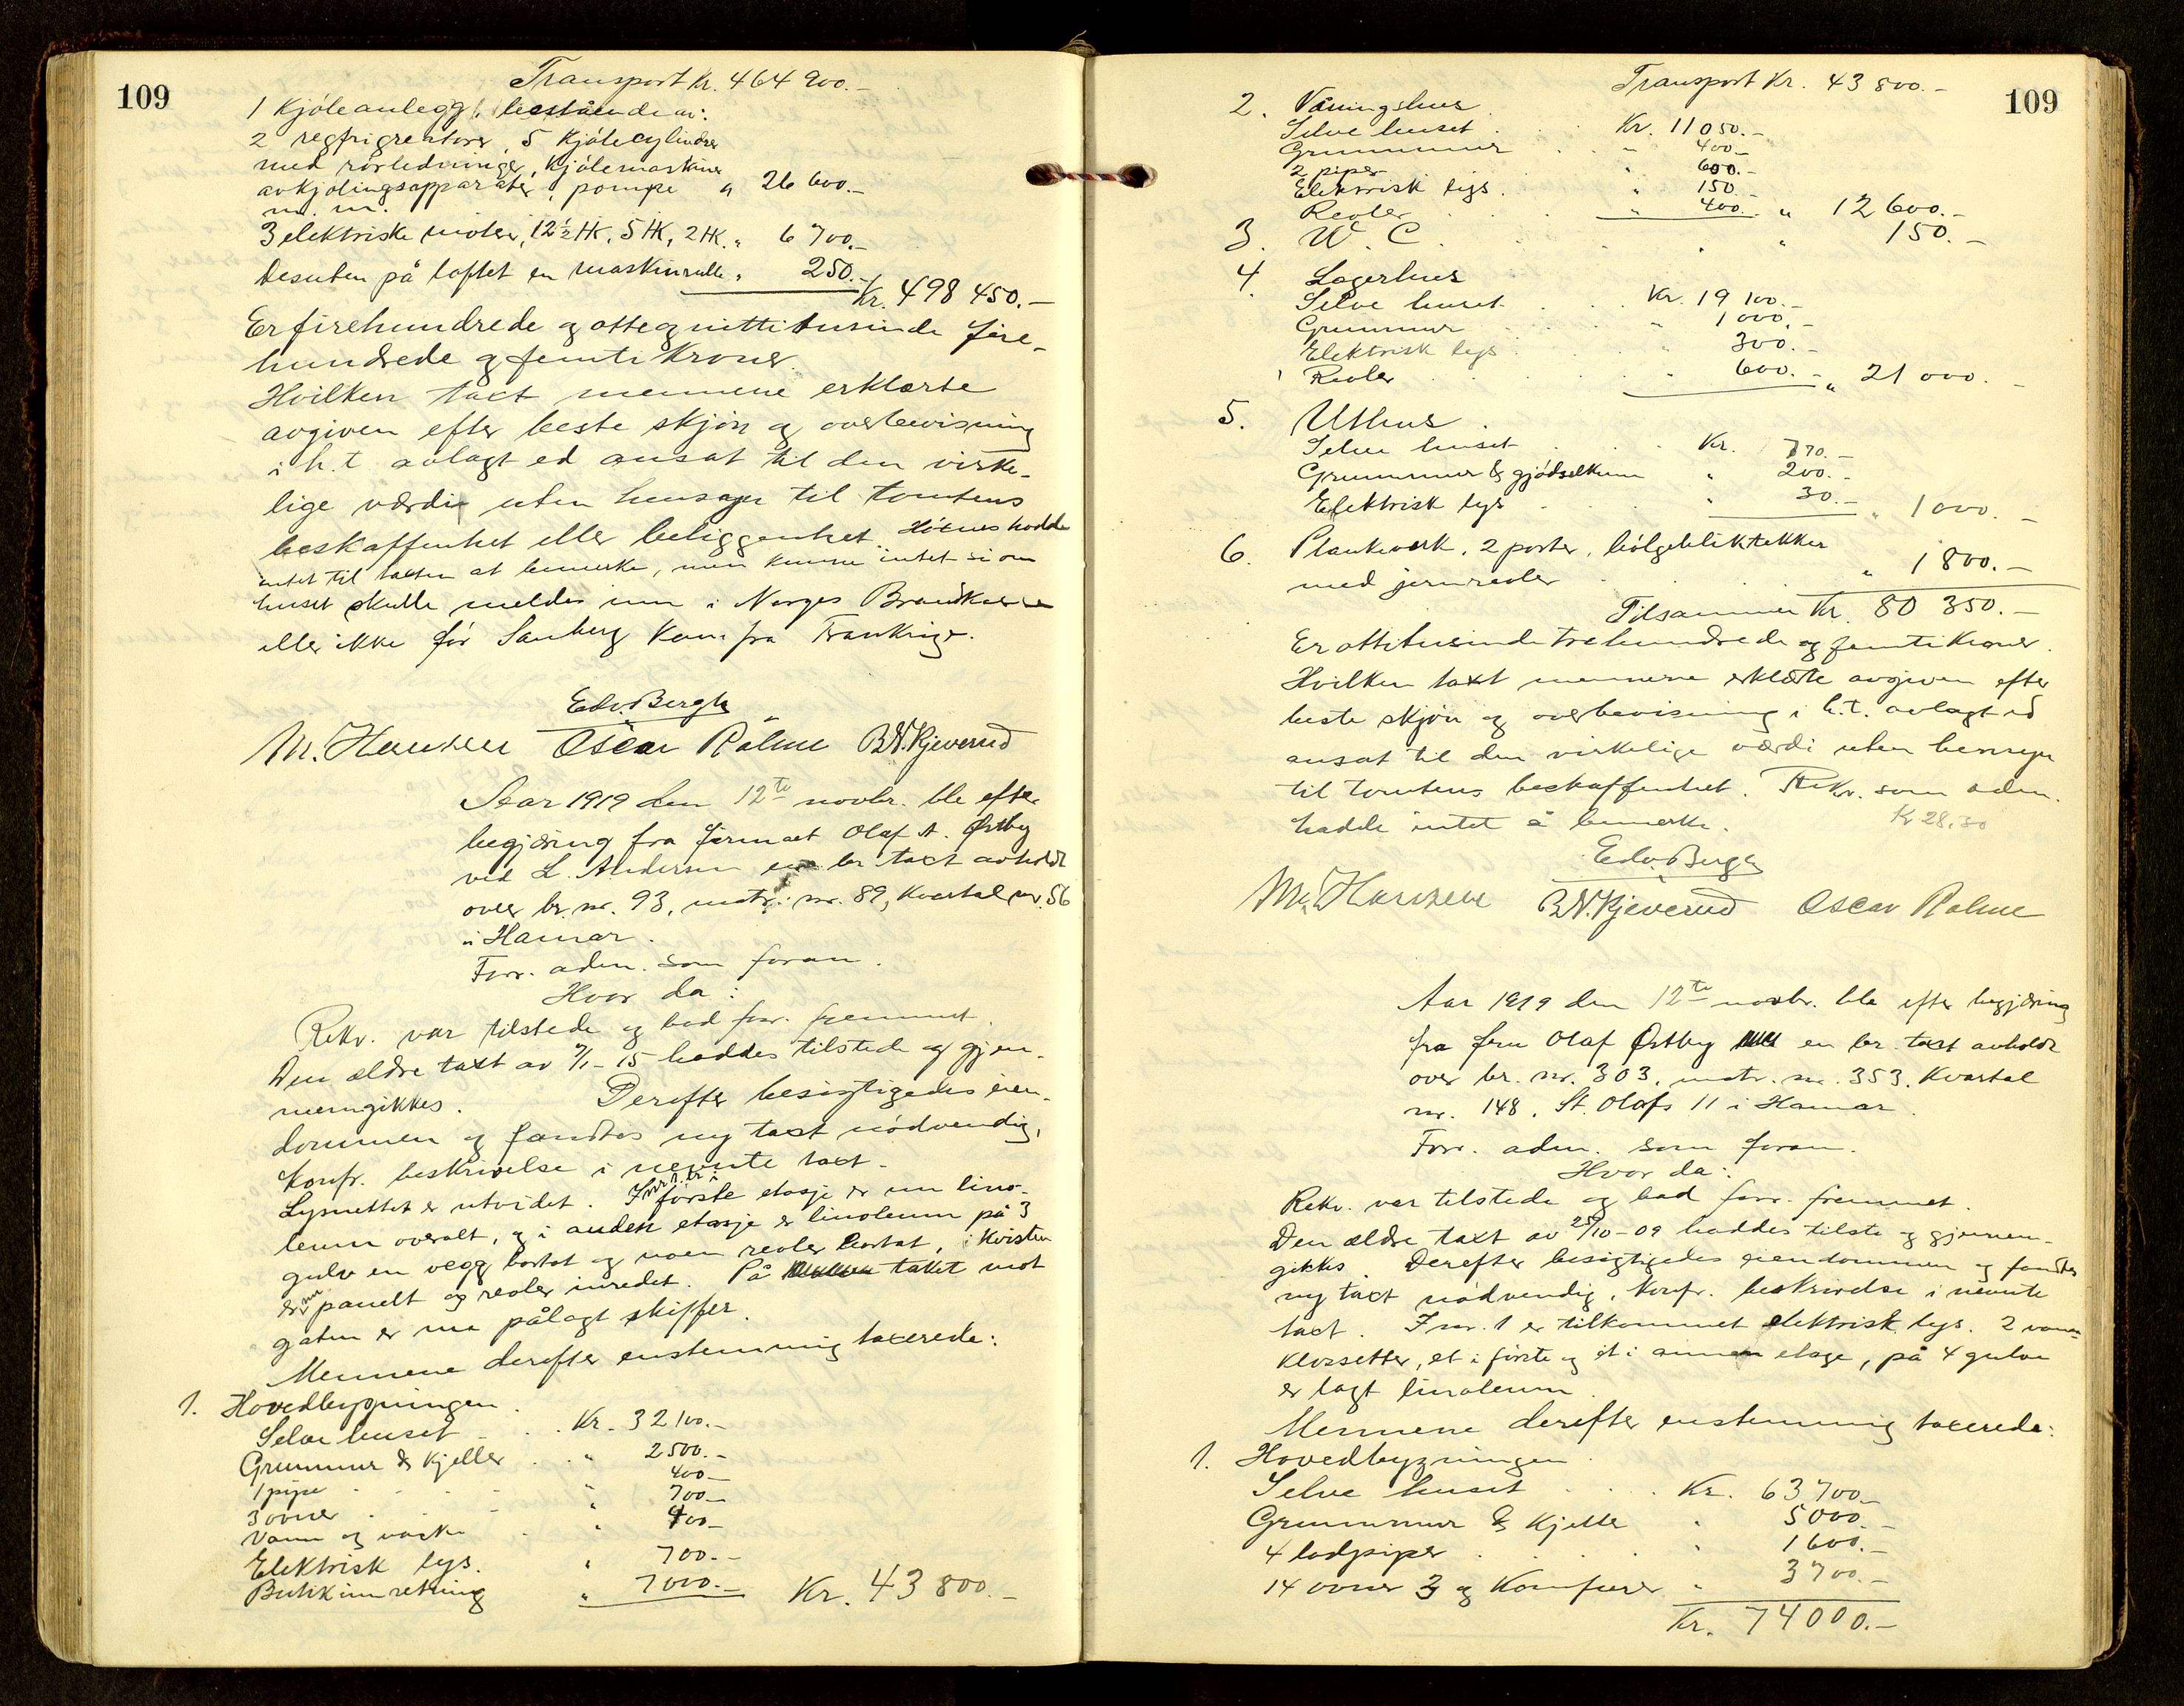 109
Transport Kr. 464 900.-
1 Kjøleanlegg, bestående av:
2 regfrigrentorer, 5 Kjølecylindrer
med rørledninger, Kjølemaskiner
avkjølingsapparater, pompe " 26 600.-
m. m.
3 elektriske motorer, 12½ HK, 5 HK, 2 HK. " 6 700.-
Desuten på loftet en maskinrulle " 250.-
Kr. 498 450.-
Er firehundrede og otteognittitusinde fire-
hundrede og femti Kroner.
Hvilken taxt mennene erklærte
avgiven efter beste skjøn og overbevisning
i h.t. avlagt ed ansat til den virke-
lige værdi uten hensyn til tomtens
beskaffenhet eller beliggenhet. hadde
intet til taxten at bemerke, men kunne intet si om
huset skulle meldes inn i Norges Brandkasse
eller ikke før Sanberg kom fra Frankrige.
Edv. Bergh
M. Hansen Oscar Rålme B.N. Kjeverud
Aar 1919 den 12te novbr. ble efter
begjæring fra firmaet Olaf A. Østby
ved L. Andersen en br. taxt avholdt
over br. nr. 93, matr. nr. 89, Kvartal nr. 56
i Hamar.
Forr. adm. som foran.
Hvor da:
Rekv. var tilstede og bad forr. fremmet.
Den ældre taxt av 9/1-15 haddes tilstede og gjen-
nemgikkes. Derefter besigtigedes eien-
dommen og fandtes ny taxt nødvendig,
Konfr. beskrivelse i nevnte taxt.
Lysnettet er utvidet. I nr. 1 er i første etasje er nu lino-
leum overalt, og i anden etasje er linoleum på 3
gulv en vegg bortat og noen reoler bortat, i Kvisten
er nu panelt og reoler inredet. På taket mot
gaten er nu pålagt skiffer.
Mennene derefter enstemmig taxerede:
1. Hovedbygningen.
Selve huset . . Kr. 32 100.-
Grunnmur & Kjeller . . " 2 500.-
1 pipe . . " 400.-
3 ovner . . " 700.-
Vann og vaske . " 400.-
Elektrisk lys. " 700.-
Butikinnretning " 7 000.- Kr. 43 800.-
109
Transport Kr. 43 800.-
2. Våningshus
Selve huset . Kr. 11 050.-
Grunnmur . . " 400.-
2 piper " 600.-
Elektrisk lys. " 150.-
Reoler . . " 400.- " 12 600.-
3. W. C. . . " 150.-
4. Lagerhus
Selve huset . . Kr. 19 100.-
Grunnmur . . " 1 000.-
Elektrisk lys . " 300.-
Reoler . . " 600.- " 21 000.-
5. Uthus.
Selve huset . . Kr. 770.-
Grunnmur & gjødselkum " 200.-
Elektrisk lys . " 30.- " 1 000.-
6. Plankeverk, 2 porter, bølgebliktekker
med jernreoler . . " 1 800.-
Tilsammen Kr. 80 350.-
Er ottitusinde trehundrede og femti Kroner.
Hvilken taxt mennene erklærte avgiven efter
beste skjøn og overbevisning i h.t. avlagt ed
ansat til den virkelige værdi uten hensyn
til tomtens beskaffenhet. Rekv. som adm.
hadde intet å bemerke. Kr 28.30
Edv. Bergh
M. Hansen B.N. Kjeverud Oscar Rålme
Aar 1919 den 12te novbr. ble efter begjæring
fra fru Olaf Østby en br. taxt avholdt
over br. nr. 303, matr. nr. 353, Kvartal
nr. 148, St. Olafs 11 i Hamar.
Forr. adm. som foran.
Hvor da:
Rekv. var tilstede og bad forr. fremmet.
Den ældre taxt av 25/10-09 haddes tilste og gjennem-
gikkes. Derefter besigtigedes eiendommen og fandtes
ny taxt nødvendig, Konfr. beskrivelse i nevnte
taxt. I nr. 1 er tilkommet elektrisk lys. 2 vann-
klossetter, et i første og et i annen etage, på 4 gulve
er lagt linoleum.
Mennene derefter enstemmig taxerede:
1. Hovedbygningen.
Selve huset . . . Kr. 63 700.-
Grunnmur & Kjeller " 5 000.-
4 lodpiper . . . " 1 600.-
14 ovner og Komfurer " 3 700.-
Kr. 74 000.-